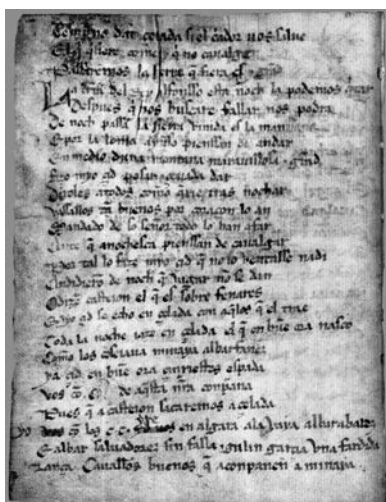 Temprano dat çeuada si el c̃ador uos salue
El q̃ q̃siere comer e q̃ no caualge
Passaremos la sierra q̃ fiera es e grãd
La trra del Rey alfonsso esta noch la podemos q̃tar
Despues q̃ nos buscare fallar nos podra
De noch passã la sierra vinida es la man
E por la loma ayuso pienssan de andar
En medio duna montana marauillosa e grãd
Fizo myo çid posar e çeuada dar
Dixoles atodos como q̃rie tras nochar
Vassallos tã buenos por coraçon lo an
Mandado de so señor todo lo han afar
Ante q̃ anochesca pienssan de caualgar
Por tal lo fa ze myo çid q̃ no lo ventasse nadi
Andidierõ de noch q̃ vagar nõ se dan
Odizẽ casteion el q̃ es sobre fenares
Myo çid se echo en çelada con aq̃los q̃ el trae
Toda la noche iaze en çelada el q̃ en buẽ ora nasco
Como los cõseiaua minaya albarfanez
Ya çid en buẽ ora çinxiestes espada
Vos cõ .C. de aq̃sta nr̃a conpaña
Pues q̃ a casteion sacaremos a çelada
cõ los .C.C. en algara ala
E albar saluadorez sin falla galin garcia vna fardida
Lança Cauallos buenos q̃ aconpanen a minaya